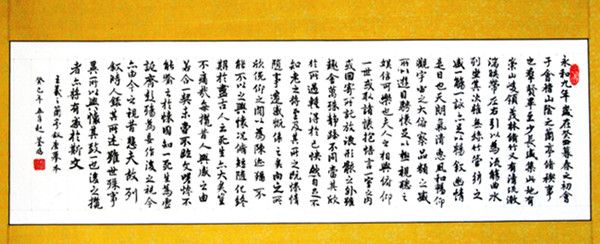 永和九年歲在癸丑暮春之初會
于會稽山陰之蘭亭修稧事
也羣賢畢至少長咸集此地有
崇山峻領茂林修竹又有清流激
湍暎帶左右引以為流觴曲水
列坐其次雖無絲竹管弦之
盛一觴一詠亦足以暢敘幽情
是日也天朗氣清惠風和暢仰
觀宇宙之大俯察品類之盛
所以遊目騁懷足以極視聽之
娛信可樂也夫人之相與俯仰
一世或取諸懷抱悟言一室之內
或因寄所託放浪形骸之外雖
趣舍萬殊靜躁不同當其欣
於所遇暫得於己快然自足不
知老之將至及其所之既惓情
隨事遷感慨係之矣向之所
欣俛仰之閒以為陳迹猶不
能不以之興懷況修短隨化終
期於盡古人云死生亦大矣豈
不痛哉每攬昔人興感之由
若合一契未嘗不臨文嗟悼不
能喻之於懷固知一死生為虛
誕齊彭殤為妄作後之視今
亦由今之視昔悲夫故列
敘時人錄其所述雖世殊事
異所以興懷其致一也後之攬
者亦將有感於斯文
王羲之蘭亭敘唐摹本
癸巳年